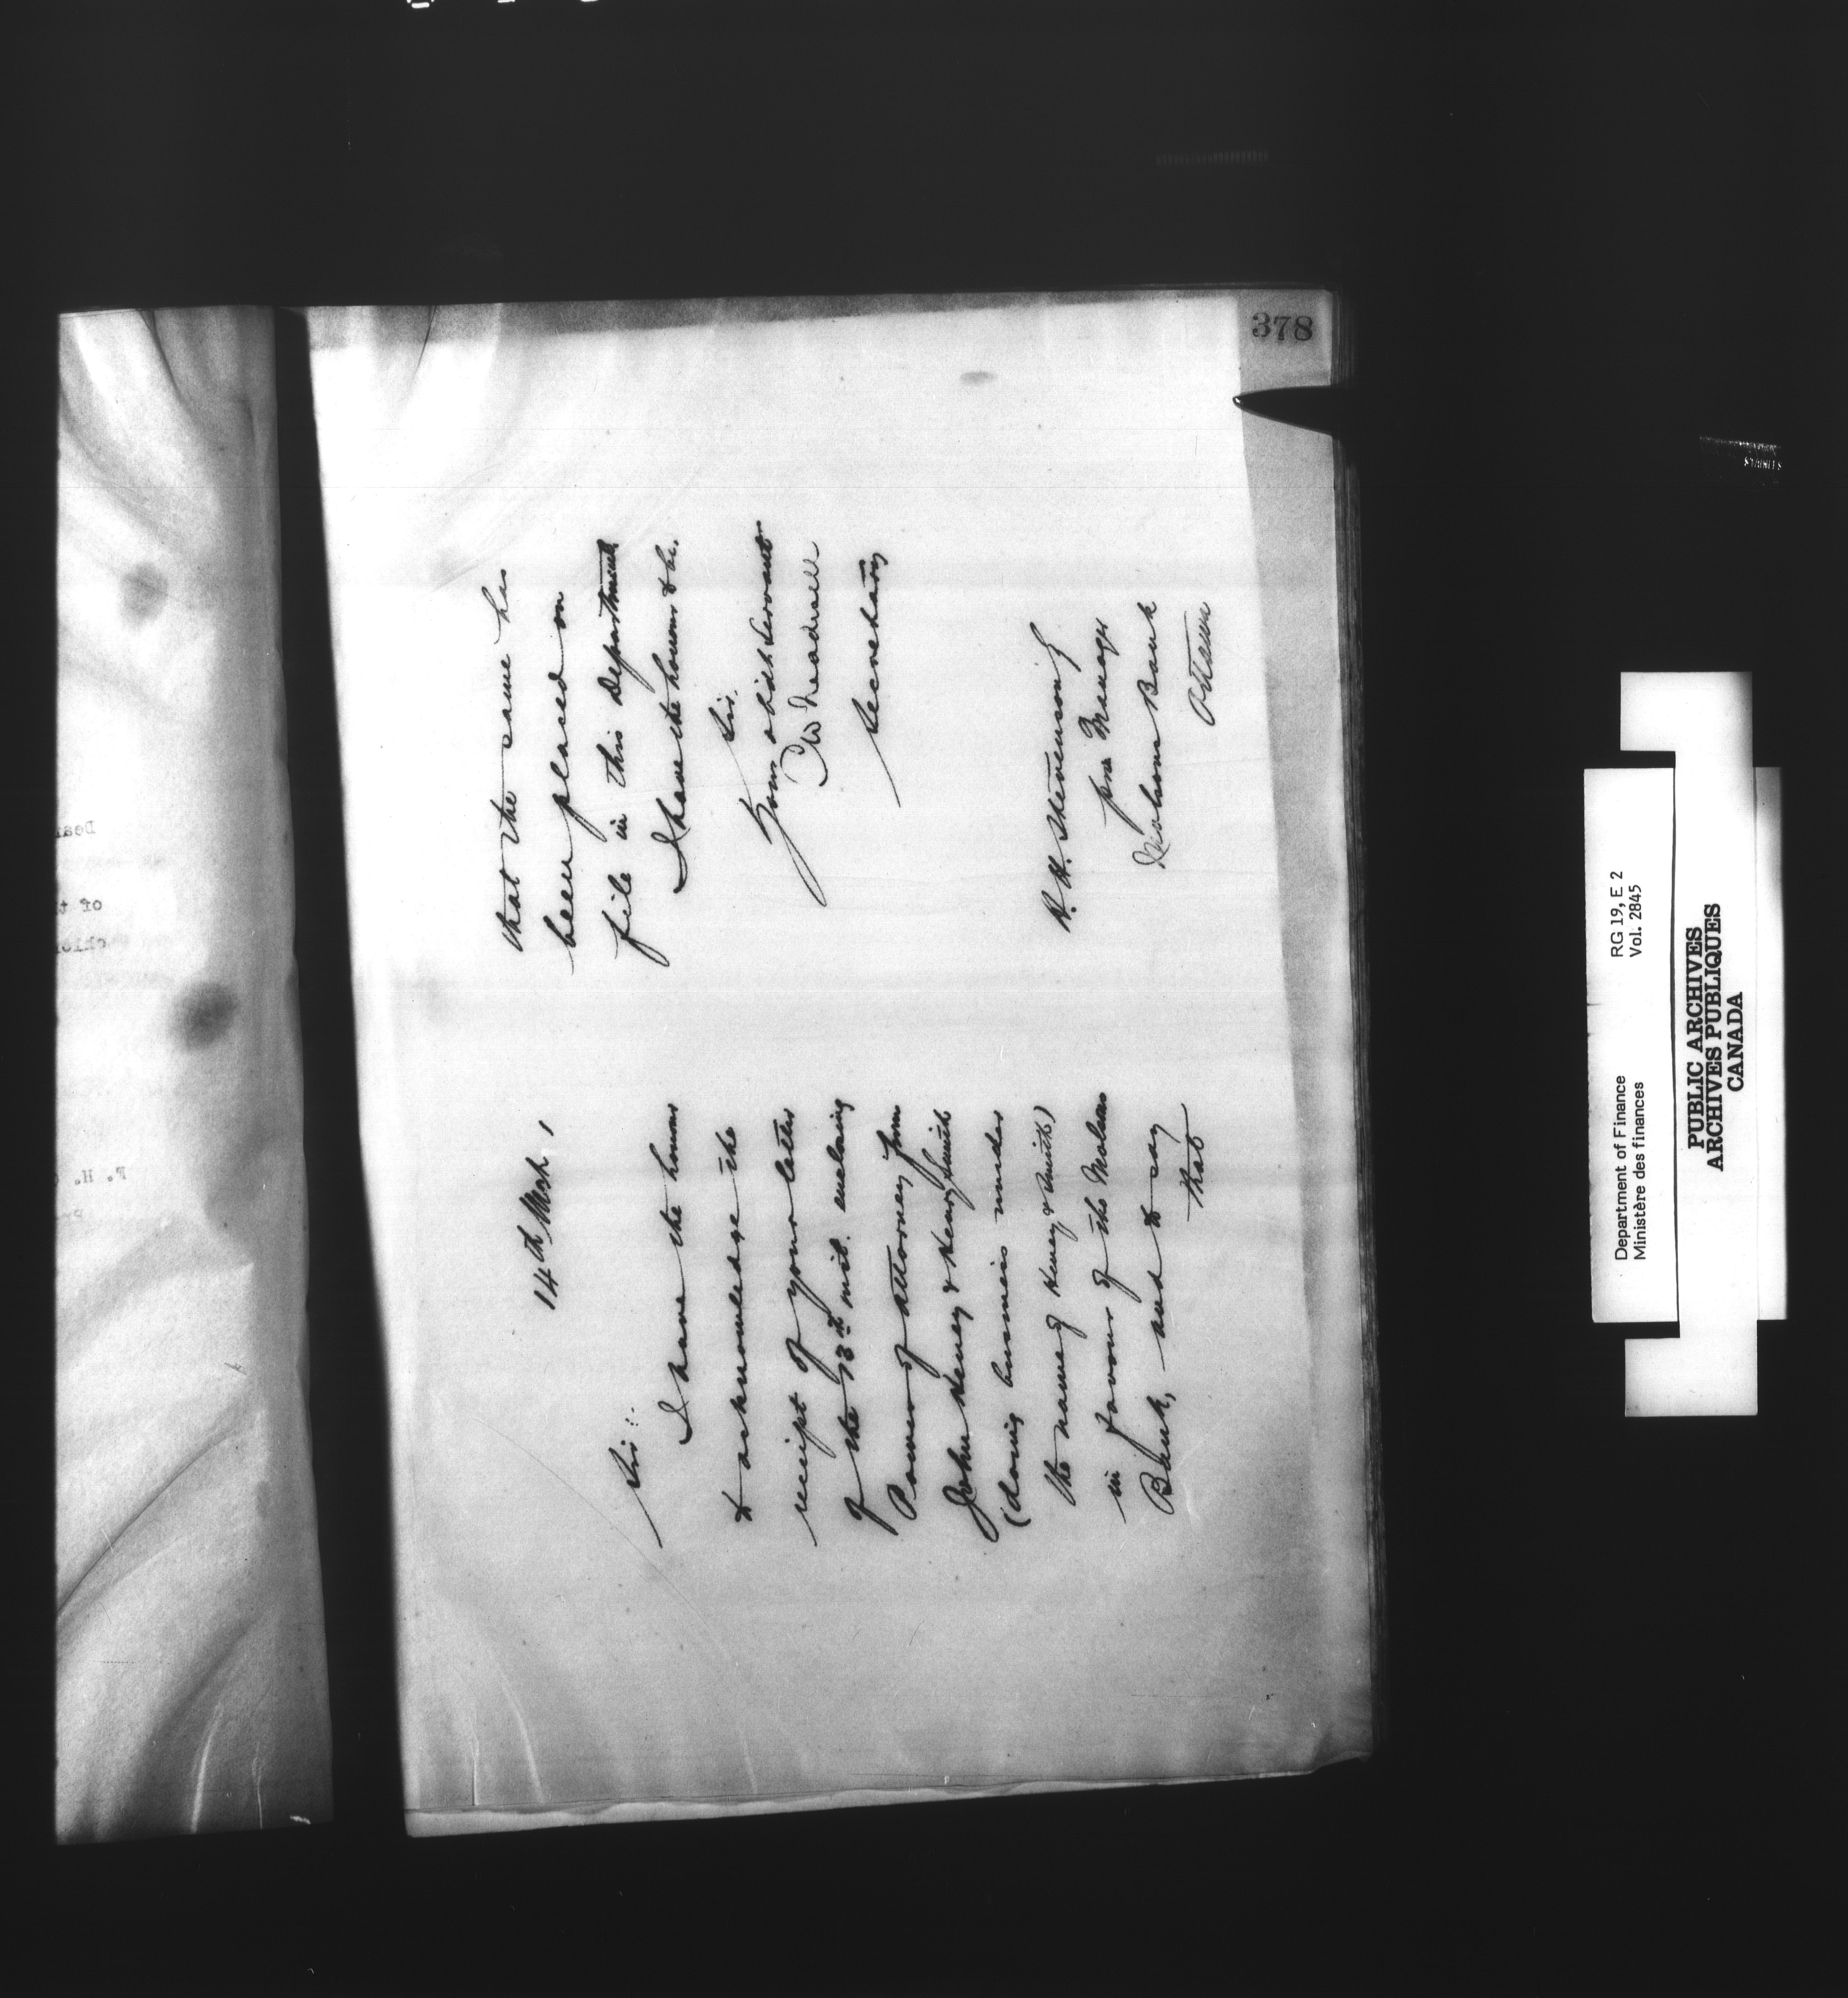 378
14th Mch,
Sir:-
I have the honor
to acknowledge the
receipt of your letter
of the 13th inst. enclosing
Power of Attorney from
John Heney & Heney Smith
(doing business under
the name of Heney & Smith)
in favour of the Molsons
Bank, and to say
that
that the same has
been placed on
file in this department
I have the honour to be.
Sir.
Your obdt servant
Secretary
R. H. Stevenson
pro Manager
Molsons Bank
Ottawa
Department of Finance RG 19, E 2
Ministère des finances Vol. 2845
PUBLIC ARCHIVES
ARCHIVES PUBLIQUES
CANADA